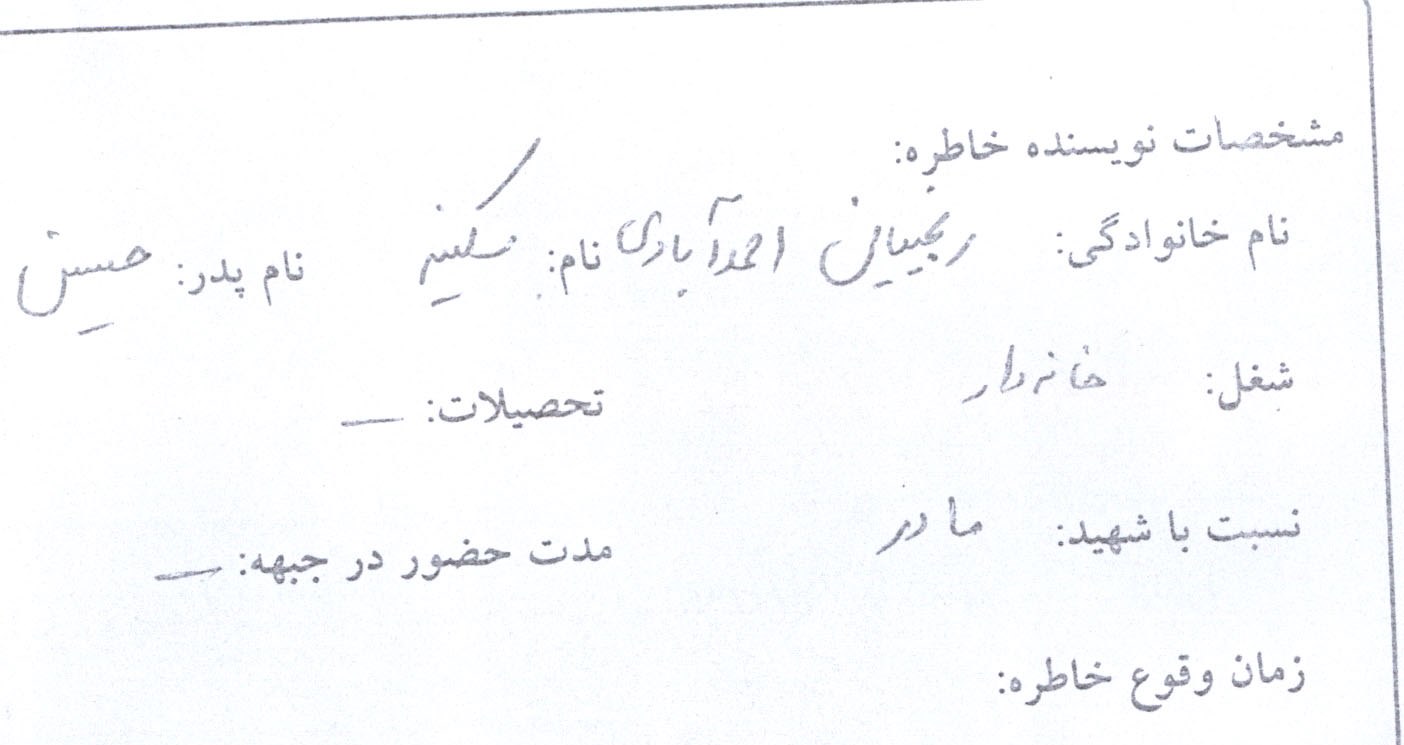 مشخصات نویسنده خاطره:
نام خانوادگی: رنجیبانی احمدآبادی نام: سکینه نام پدر: حسین
شغل: خانه دار تحصیلات: —
نسبت با شهید: مادر مدت حضور در جبهه: —
زمان وقوع خاطره: